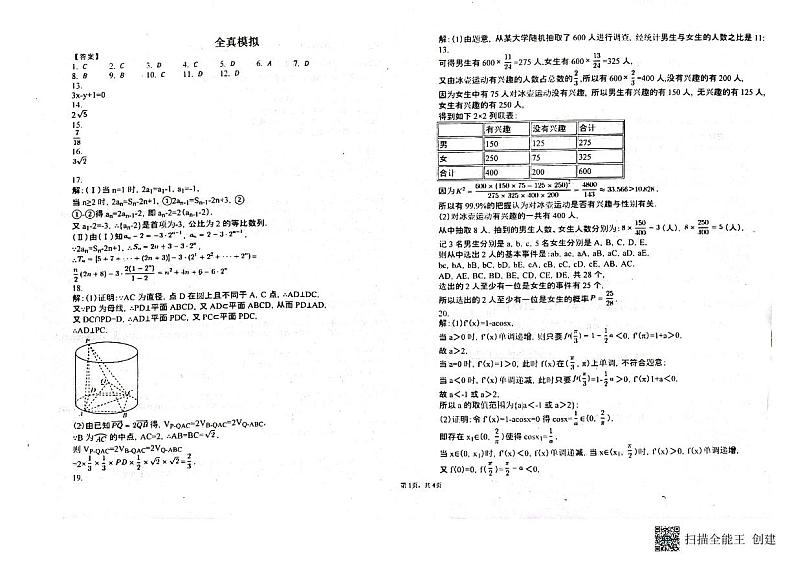 全真模拟
【答案】
1. C 2. C 3. D 4. C 5. D 6. A 7. D
8. B 9. B 10. C 11. D 12. D
13.
3x-y+1=0
14.
2√5
15.
7/18
16.
3√2
17.
解:(Ⅰ)当 n=1 时, 2a₁=a₁-1, a₁=-1.
当 n≥2 时, 2aₙ=Sₙ-2n+1, ①2aₙ₋₁=Sₙ₋₁-2n+3, ②
①-②得 aₙ=2aₙ₋₁-2, 即 aₙ-2=2(aₙ₋₁-2).
又 a₁-2=-3, ∴{aₙ-2}是首项为-3, 公比为 2 的等比数列.
(Ⅱ)由(Ⅰ)知 aₙ-2=-3·2ⁿ⁻¹, aₙ=2-3·2ⁿ⁻¹,
∵2aₙ=Sₙ-2n+1, ∴Sₙ=2n+3-3·2ⁿ,
∴Tₙ=[5+7+···(2n+3)]-3·(2¹+2²+···+2ⁿ)=
n/2(2n+8)-3·2(1-2ⁿ)/(1-2)=n²+4n+6-6·2ⁿ
18.
解: (1)证明:∵AC 为直径, 点 D 在圆上且不同于 A, C 点, ∴AD⊥DC,
又∵PD 为母线, ∴PD⊥平面 ABCD, 又 AD⊂平面 ABCD, 从而 PD⊥AD,
又 DC∩PD=D, ∴AD⊥平面 PDC, 又 PC⊂平面 PDC,
∴AD⊥PC.
P
Q
D
C
A
B
(2)由已知 PQ=2QB 得, V_P-QAC=2V_B-QAC=2V_Q-ABC.
∵B 为 AC 的中点, AC=2, ∴AB=BC=√2.
则 V_P-QAC=2V_B-QAC=2V_Q-ABC
=2×1/3×1/3×PD×1/2×√2×√2=2/3.
19.
解: (1)由题意, 从某大学随机抽取了 600 人进行调查, 经统计男生与女生的人数之比是 11:
13.
可得男生有 600×11/24=275 人,女生有 600×13/24=325 人,
又由冰壶运动有兴趣的人数占总数的2/3,所以有 600×2/3=400 人,没有兴趣的有 200 人,
因为女生中有 75 人对冰壶运动没有兴趣, 所以男生有兴趣的有 150 人, 无兴趣的有 125 人,
女生有兴趣的有 250 人,
得到如下 2×2 列联表:
有兴趣 没有兴趣 合计
男 150 125 275
女 250 75 325
合计 400 200 600
因为K²=600×(150×75-125×250)²/(275×325×400×200)=4800/143≈33.566>10.828,
所以有 99.9%的把握认为对冰壶运动是否有兴趣与性别有关.
(2)对冰壶运动有兴趣的一共有 400 人,
从中抽取 8 人, 抽到的男生人数、女生人数分别为: 8×150/400=3 (人), 8×250/400=5 (人).
记 3 名男生分别是 a, b, c, 5 名女生分别是 A, B, C, D, E,
则从中选出 2 人的基本事件是:ab, ac, aA, aB, aC, aD, aE,
bc, bA, bB, bC, bD, bE, cA, cB, cC, cD, cE, AB, AC,
AD, AE, BC, BD, BE, CD, CE, DE, 共 28 个,
选出的 2 人至少有一位是女生的事件有 25 个,
所以选出的 2 人至少有一位是女生的概率 P=25/28.
20.
解: (1)f'(x)=1-acosx,
当 a>0 时, f'(x)单调递增, 则只要f'(π/3)=1-1/2a<0, f'(π)=1+a>0,
故 a>2,
当 a=0 时, f'(x)=1>0, 此时 f(x)在(π/3, π)上单调, 不符合题意;
当 a<0 时, f'(x)单调递减, 此时只要f'(π/3)=1-1/2a>0, f'(π)1+a<0,
故 a<-1 或 a>2,
所以 a 的取值范围为{a|a<-1 或 a>2};
(2)证明: 令 f'(x)=1-acosx=0 得 cosx=1/a∈(0, 2/π),
即存在 x₁∈(0, π/2)使得 cosx₁=1/a,
当 x∈(0, x₁)时, f'(x)<0, f(x)单调递减, 当 x∈(x₁, π/2)时, f'(x)>0, f(x)单调递增,
又 f(0)=0, f(π/2)=π/2-a<0,
第 1页, 共 4页
扫描全能王 创建